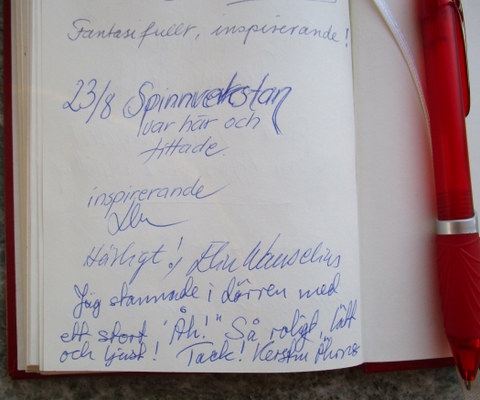 Fantasifullt, inspirerande!
23/8 Spinnverkstan
var här och
tittade
inspirerande
Härligt! Elin Wanselius
Jag stannade i dörren med
ett stort "Åh!" Så roligt, lätt
och ljust! Tack! Kerstin